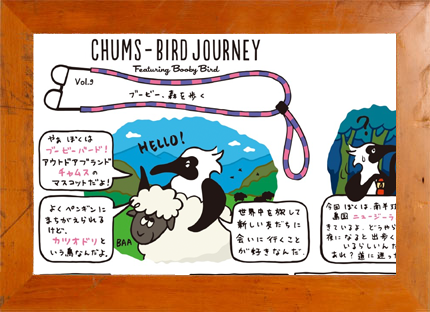 CHUMS-BIRD JOURNEY
Featuring Booby Bird
Vol.9
ブービー、森を歩く
やぁ ぼくは
ブービーバード!
アウトドアブランド
チャムスの
マスコットだよ!
HELLO!
よくペンギンに
まちがえられる
けど、
カツオドリと
いう鳥なんだよ。
BAA
世界中を旅して
新しい友だちに
会いに行くこと
が好きなんだ。
?
今回ぼくは、南半球
島国 ニュージーラ
きているよ。どうやら
夜になると出歩く
いるらしいん
あれ?道に迷っ